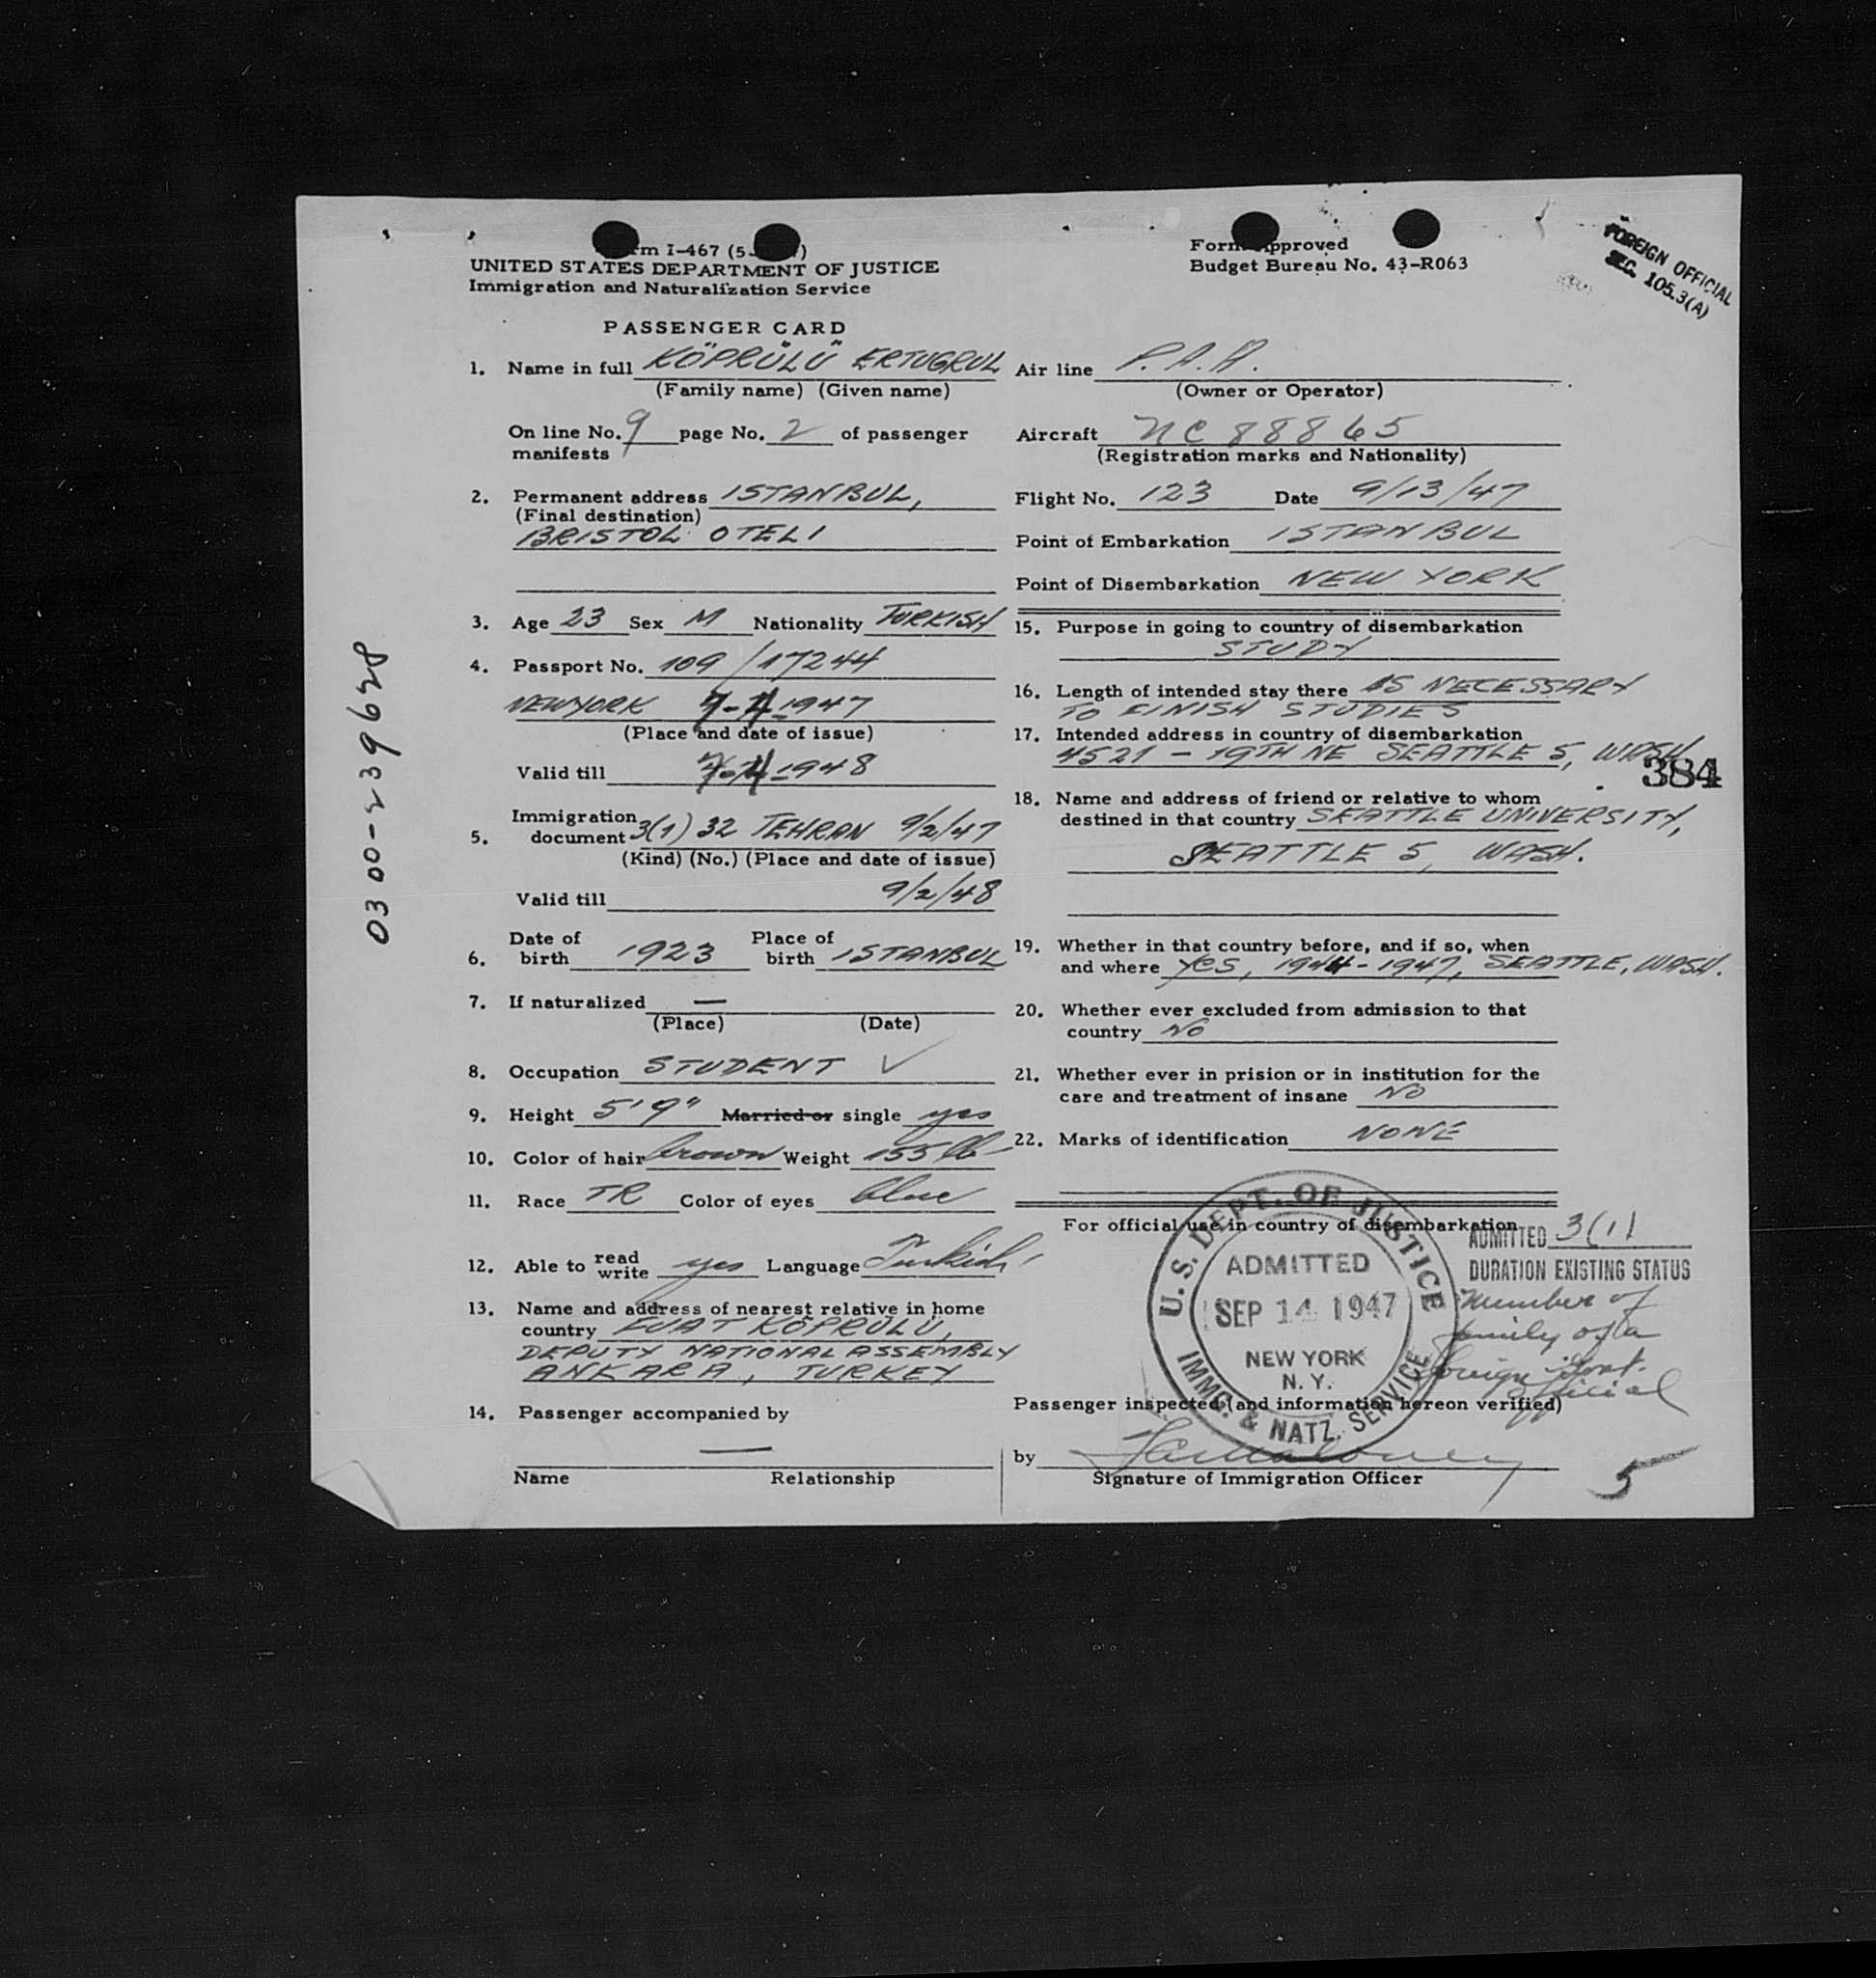 FOREIGN OFFICIAL
SEC. 105.3(A)
rm I-467 (5-
UNITED STATES DEPARTMENT OF JUSTICE
Immigration and Naturalization Service
Form Approved
Budget Bureau No. 43-R063
PASSENGER CARD
1. Name in full KÖPRÜLÜ ERTUGRUL
(Family name) (Given name)
On line No. 9 page No. 2 of passenger
manifests
2. Permanent address ISTANBUL,
(Final destination)
BRISTOL OTELI
3. Age 23 Sex M Nationality TURKISH
4. Passport No. 109/17244
NEWYORK 7-4-1947
(Place and date of issue)
Valid till 7-4-1948
5. Immigration
document 3(1) 32 TEHRAN 9/2/47
(Kind) (No.) (Place and date of issue)
Valid till 9/2/48
6. Date of birth 1923 Place of birth ISTANBUL
7. If naturalized —
(Place) (Date)
8. Occupation STUDENT ✓
9. Height 5'9" Married or single yes
10. Color of hair brown Weight 155 lb
11. Race TR Color of eyes blue
12. Able to read write yes Language Turkish
13. Name and address of nearest relative in home
country FUAT KÖPRÜLÜ,
DEPUTY NATIONAL ASSEMBLY
ANKARA, TURKEY
14. Passenger accompanied by
—
Name Relationship
Air line P.A.A.
(Owner or Operator)
Aircraft NC 88865
(Registration marks and Nationality)
Flight No. 123 Date 9/13/47
Point of Embarkation ISTANBUL
Point of Disembarkation NEW YORK
15. Purpose in going to country of disembarkation
STUDY
16. Length of intended stay there AS NECESSARY
TO FINISH STUDIES
17. Intended address in country of disembarkation
4521 - 19TH NE SEATTLE 5, WASH.
384
18. Name and address of friend or relative to whom
destined in that country SEATTLE UNIVERSITY,
SEATTLE 5, WASH.
19. Whether in that country before, and if so, when
and where YES, 1944-1947, SEATTLE, WASH.
20. Whether ever excluded from admission to that
country NO
21. Whether ever in prision or in institution for the
care and treatment of insane NO
22. Marks of identification NONE
For official use in country of disembarkation
ADMITTED 3(1)
DURATION EXISTING STATUS
Member of
family of a
foreign govt.
official
U.S. DEPT. OF JUSTICE
ADMITTED
SEP 14 1947
NEW YORK
N. Y.
IMMG. & NATZ. SERVICE
Passenger inspected (and information hereon verified)
by
Signature of Immigration Officer
5
0300-239628